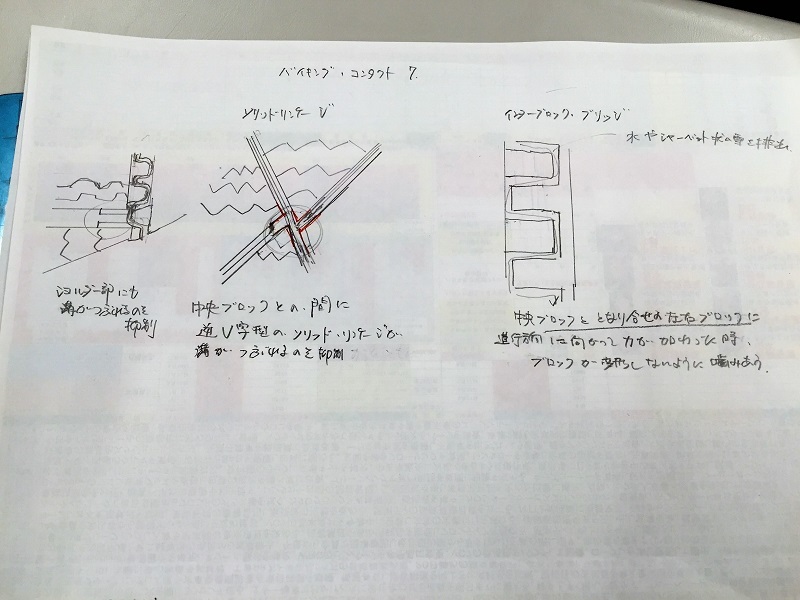 バイキング・コンタクト 7.
ソリッドリンケージ
インターブロック・ブリッジ
水やシャーベット状の雪を排出
ショルダー部にも
溝がつぶれるのを
抑制
中央ブロックとの間に
逆V字型のソリッド・リンケージが
溝がつぶれるのを抑制
中央ブロックととなり合せの左右ブロックに
進行方向に向かって力が加わった時、
ブロックが変形しないように噛みあう。